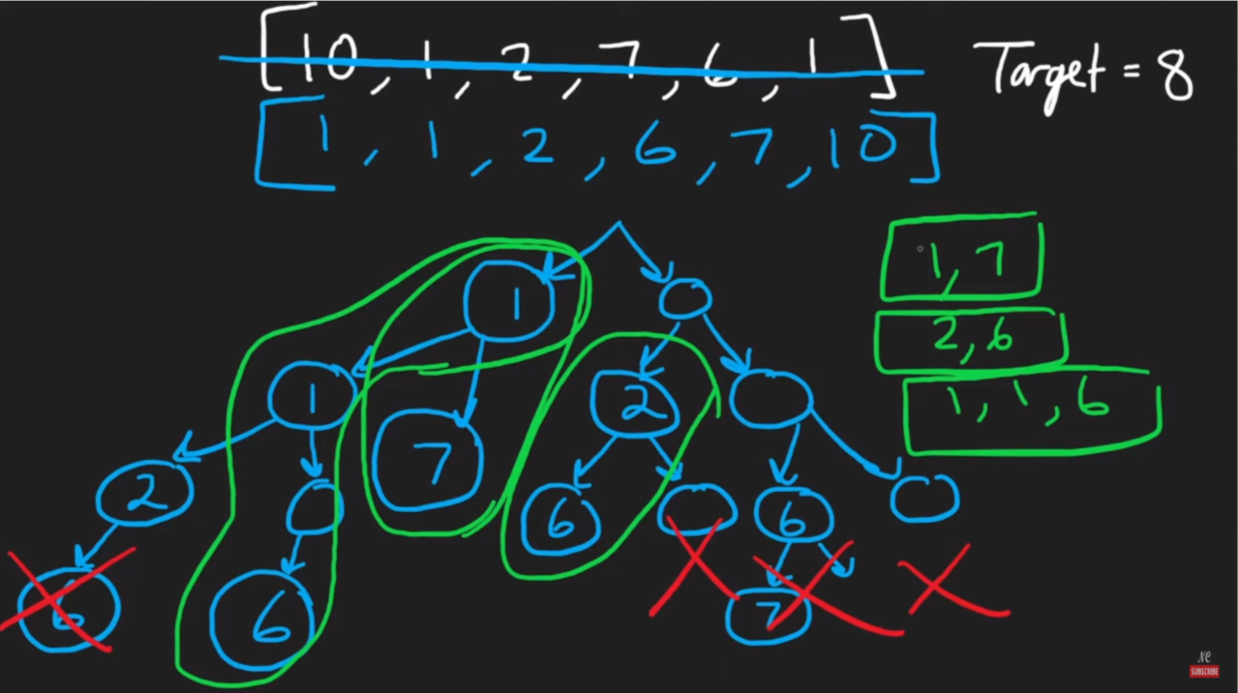 [10, 1, 2, 7, 6, 1]
Target = 8
[1, 1, 2, 6, 7, 10]
1, 7
1
2, 6
1
2
1, 1, 6
7
2
6
6
6
6
7
NC
SUBSCRIBE